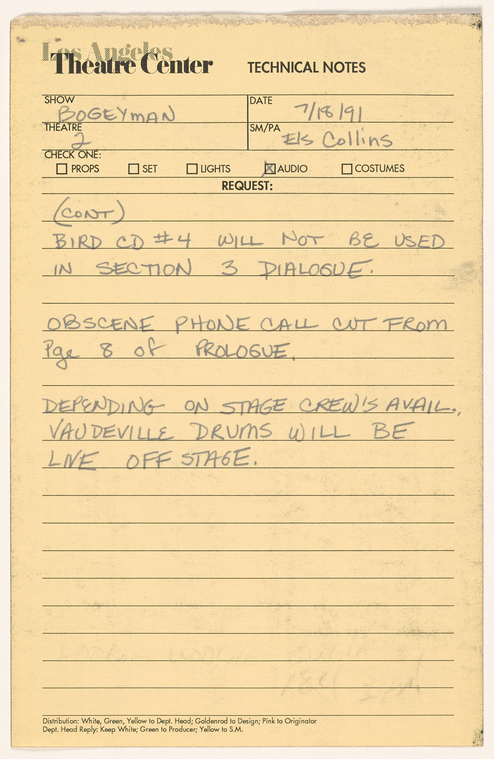 Los Angeles
Theatre Center TECHNICAL NOTES
SHOW BOGEYMAN DATE 7/18/91
THEATRE 2 SM/PA Els Collins
CHECK ONE:
☐ PROPS ☐ SET ☐ LIGHTS ☒ AUDIO ☐ COSTUMES
REQUEST:
(CONT)
BIRD CD #4 WILL NOT BE USED
IN SECTION 3 DIALOGUE.
OBSCENE PHONE CALL CUT FROM
Pge 8 of PROLOGUE.
DEPENDING ON STAGE CREW'S AVAIL.,
VAUDEVILLE DRUMS WILL BE
LIVE OFF STAGE.
Distribution: White, Green, Yellow to Dept. Head; Goldenrod to Design; Pink to Originator
Dept. Head Reply: Keep White; Green to Producer; Yellow to S.M.